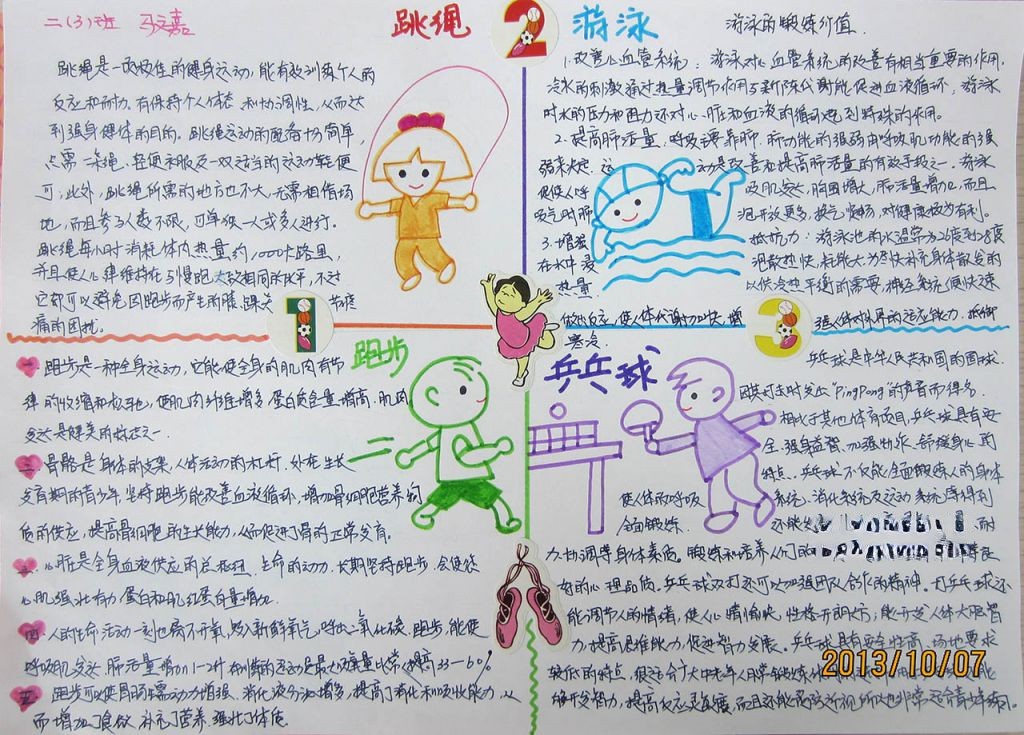 二(3)班 马文嘉
跳绳
2
游泳
游泳的锻炼价值.
跳绳是一项极佳的健身运动,能有效训练个人的
反应和耐力,有保持个人体态和协调性,从而达
到强身健体的目的。跳绳运动的配备十分简单,
只需一条绳,轻便衣服及一双适当的运动鞋便
可;此外,跳绳所需的地方也不大,无需租借场
地,而且参与人数不限,可单独一人或多人进行。
跳绳每小时消耗体内热量约1000卡路里,
并且使心律维持在与慢跑大致相同的水平,不过
它却可以避免因跑步而产生的膝、踝关节疼
痛的困扰。
1.改善心血管系统:游泳对心血管系统的改善有相当重要的作用.
冷水的刺激通过热量调节作用与新陈代谢能促进血液循环,游泳
时水的压力和阻力还对心脏和血液的循环起到特殊的作用。
2.提高肺活量,呼吸主要靠肺,肺功能的强弱由呼吸肌功能的强
弱来决定,运动是改善和提高肺活量的有效手段之一.游泳
促使人呼吸肌发达,胸围增大,肺活量增加,而且
吸气时肺泡开放更多,换气顺畅,对健康极为有利。
3.增强抵抗力:游泳池的水温常为26度到28度
在水中浸泡散热快,耗能大.为尽快补充身体散发的
热量,以供冷热平衡的需要,神经系统便快速
做出反应,使人体代谢加快,增强人体对外界的适应能力,抵御
寒冷.
1
3
跑步
一、跑步是一种全身运动,它能使全身的肌肉有节
律的收缩和松弛,使肌肉纤维增多,蛋白质含量增高.肌肉
发达是健美的标志之一.
二、骨骼是身体的支架,人体活动的杠杆.处在生长
发育期的青少年坚持跑步能改善血液循环,增加骨细胞营养物
质的供应,提高骨细胞的生长能力,从而促进骨的正常发育。
三、心脏是全身血液供应的总枢纽.生命的动力.长期坚持跑步,会使你
心肌强壮有力,蛋白和肌红蛋白量增加.
四、人的生命活动一刻也离不开氧,吸入新鲜氧气,呼出二氧化碳.跑步,能使
呼吸肌发达.肺活量增加
五、跑步可以使胃肠蠕动力增强,消化液分泌增多,提高了消化和吸收能力,从
而增加了食欲,补充了营养,强壮了体质.
乒乓球
乒乓球是中华人民共和国的国球.
因其打击时发出"Ping Pong"的声音而得名.
相比于其他体育项目,乒乓球具有安
全、强身益智、加强快乐、舒缓身心的
特点.乒乓球不仅能全面锻炼人的身体
使人体的呼吸系统、消化系统及运动系统等得到
全面锻炼.还能使
力、协调等身体素质。锻炼和培养人们的
好的心理品质.乒乓球双打还可以加强团队合作的精神。打乒乓球还
能调节人的情绪,使人心情愉快,性格开朗大方;能开发人体大脑智
力,提高思维能力,促进智力发展。乒乓球具有安全性高、场地要求
较低的特点,很适合广大中老年人
2013/10/07